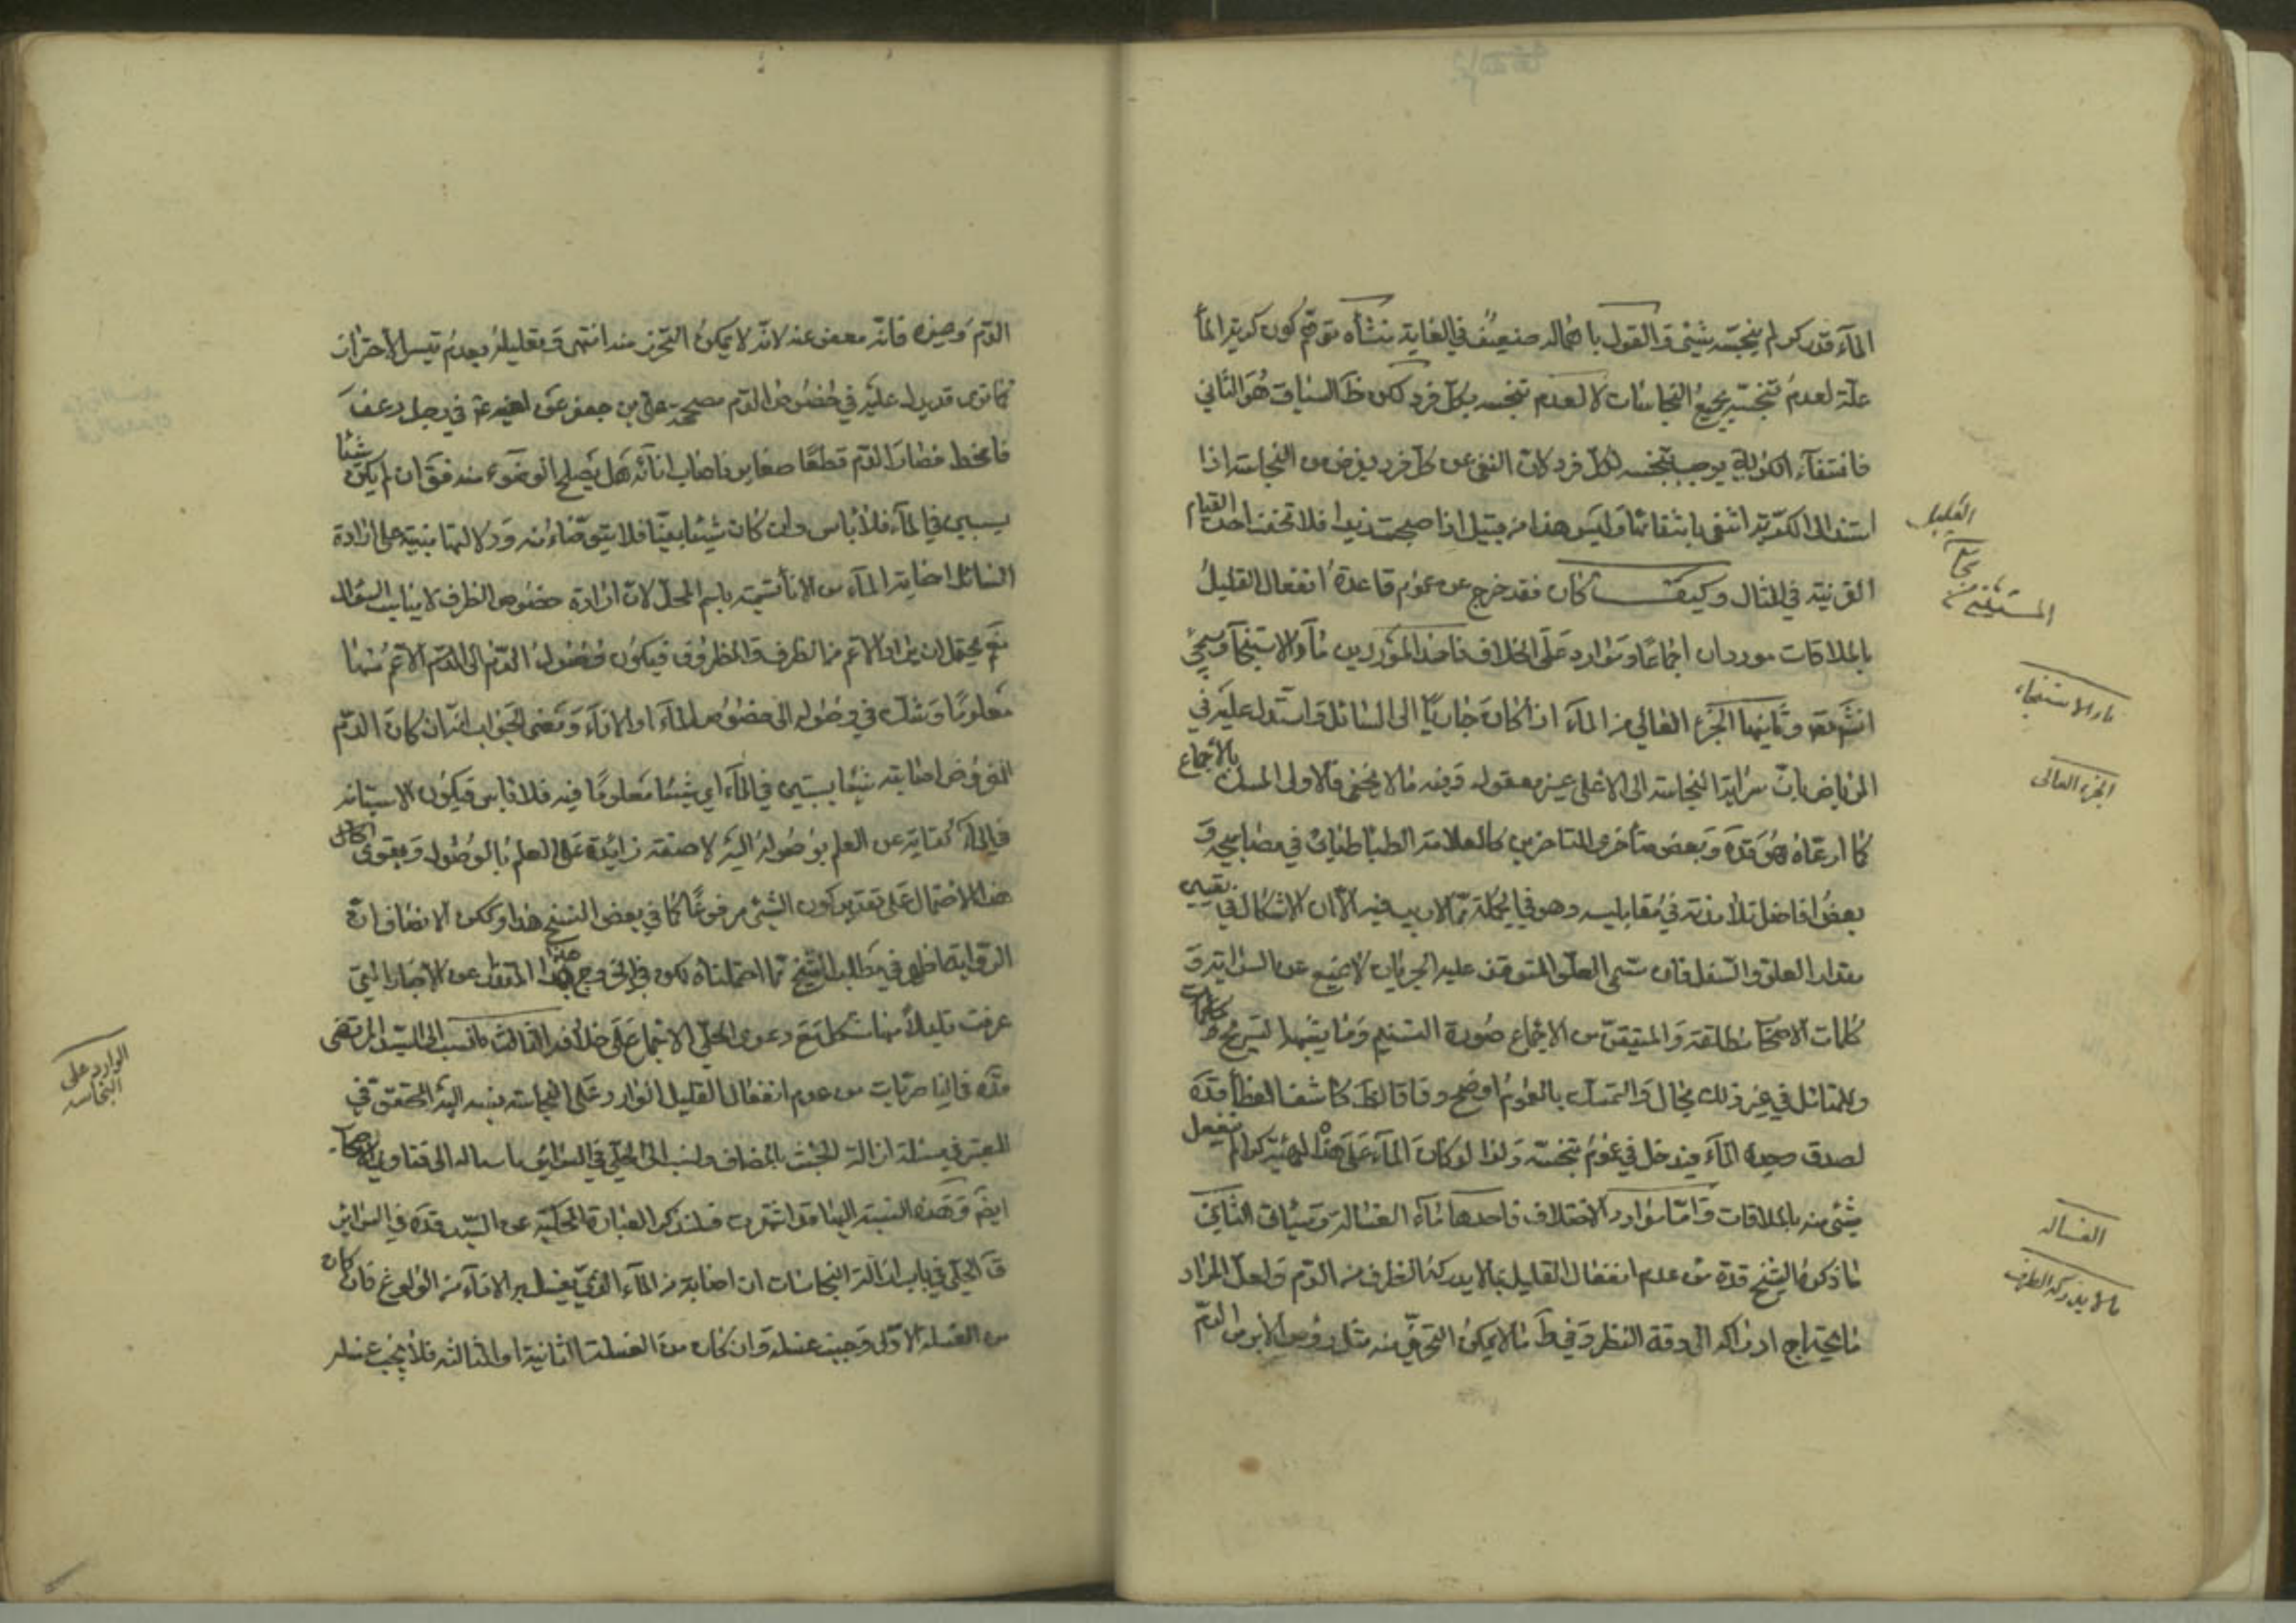 المآء قدر كر لم ينجسه شيئ و القول باهماله ضعيف في الغاية منشأه توهم كون كرية المآء
علة لعدم تنجسه بجميع النجاسات لا لعدم تنجسه بكل فرد لكن ظ السياق هو الثاني
فانتفآء الكرية يوجب تنجسه لكل فرد لان النفي عن كل فرد يفرض من النجاسة اذا
استند الى الكرية انتفى بانتفائها وليس هذا من قبيل اذا صحبت زيدا فلا تخف احدا لقيام
القرنية في المثال وكيف كان فقد خرج عن عموم قاعدة انفعال القليل
بالملاقات موردان اجماعا و موارد على الخلاف فاحد الموردين مآء الاستنجآء وسيجيئ
انشم تعه وثانيهما الجزء العالي من المآء اذا كان جاريا الى السافل و استدل عليه في
الرياض بان سراية النجاسة الى الاعلى غير معقوله وفيه ما لا يخفى فالاولى التمسك بالأجماع
كما ادعاه هو قده وبعض متأخري المتاخرين كالعلامة الطباطبائي في مصابيحه و
بعض افاضل تلامذته في مقابيسه وهو في الجملة مما لا ريب فيه الا ان الاشكال في تعيين
مقدار العلو والتسفل فان مسمى العلو المتوقف عليه الجريان لا يمنع عن السراية و
كلمات الاصحاب مطلقة و المتيقن من الاجماع صورة التسنيم وما يشبهها كتسريح
وللمتأمل في غير ذلك مجال والتمسك بالعموم اوضح وفاقا لظ كاشف الغطآء قده
لصدق وحدة المآء فيدخل في عموم تنجسه ولذا لو كان المآء على هذا الهيئة كرا لم ينفعل
شيئ منه بالملاقات و امّا موارد الاختلاف فاحدها مآء الغسالة و سيأتي الثاني
ما ذكره الشيخ قده من عدم انفعال القليل بما لا يدركه الطرف من الدم ولعل المراد
ما يحتاج ادراكه الى دقة النظر و في ط ما لا يمكن التحرز منه مثل رؤس الابر من الدم
القليل
المستثنى من
مآء الاستنجاء
الجزء العالى
الغساله
ما لا يدركه الطرف
الدم وغيره فانه معفو عنه لانه لا يمكن التحرز منه انتهى و تعليله بعدم تيسر الاحتراز
كما ترى قد يدل عليه في خصوص الدم مصححة على بن جعفر عن اخيه ع في رجل رعف
فامتخط فصار الدم قطعا صغارا فاصاب انآئه هل يصلح الوضوء منه فق ان لم يكن شيئا
يستبين في المآء فلا بأس و ان كان شيئا بينا فلا يتوضاء منه و دلالتها مبنية على ارادة
السائل اصابة المآء من الانآء تسمية باسم المحل لان ارادة خصوص الظرف لا يناسب السؤال
نعم يحتمل ان يراد الاعم من الظرف و المظروف فيكون وصول الدم الى القدر الاعم منهما
معلوما و شك في وصوله الى خصوص المآء او الانآء و معنى الجواب انه ان كان الدم
المفروض اصابته شيئا يستبين في المآء اي شيئا معلوما فيه فلا بأس فيكون الاستبانة
في المآء كناية عن العلم بوصوله اليه لا صفة زائدة على العلم بالوصول و يقوى
هذا الاحتمال على تقدير كون الشيئ مرفوعا كما في بعض النسخ هذا و لكن الانصاف ان
الرواية ظاهرة في مطلب الشيخ مما احتملناه لكن في الخروج بهذا المقدار عن الاخبار التي
عرفت قليلا منها مشكل مع دعوى الحلي الاجماع على خلافه الثالث ما نسب الى السيد المرتضى
قده في الناصريات من عدم انفعال القليل الوارد على النجاسة نسبه اليه المحقق في
المعتبر في مسئلة ازالة الخبث بالمضاف و نسب الى الحلي في السرائر
ايضم و هذه النسبة اليهما قد اشتهرت فلنذكر العبارة المحكية عن السيد قده في السرائر
ق الحلي في باب ازالة النجاسات ان اصابة من المآء الذي يغسل به الانآء من الولوغ فان كان
من الغسلة الاولى وجب غسله و ان كان من الغسلة الثانية او الثالثه فلا يجب غسله
الوارد على
النجاسه